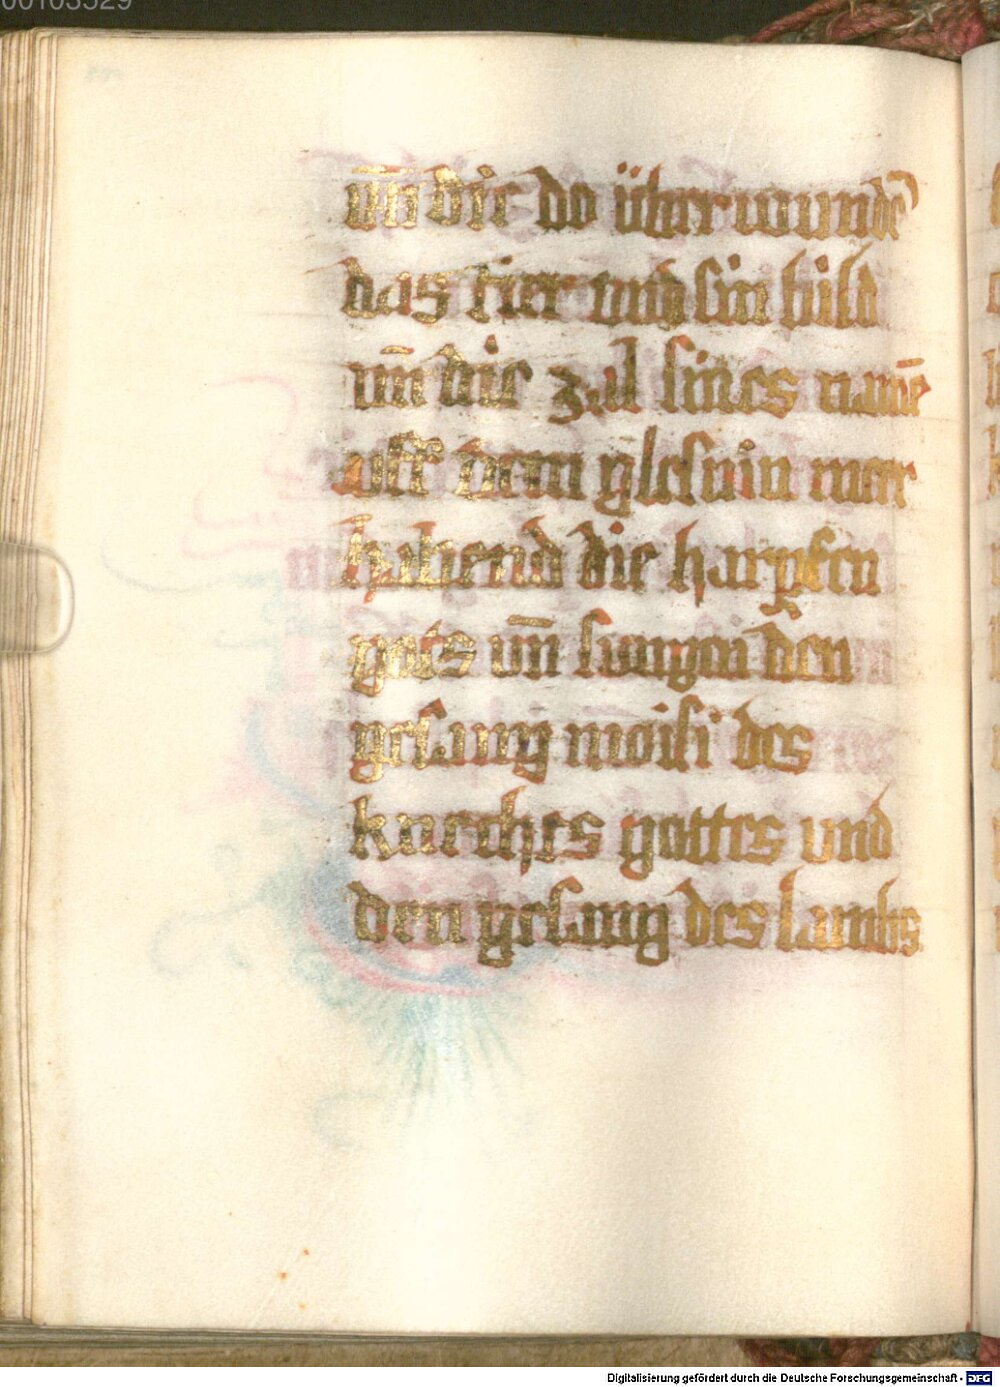 00103529
vn̄ die do überwundē
das tier vnd sin bild
vn̄ die zal sines namē
uff dem glesnin mer
habend die harpfen
gots vn̄ sungen den
gesang moisi des
knechtes gottes vnd
den gesang des lambs
Digitalisierung gefördert durch die Deutsche Forschungsgemeinschaft - DFG